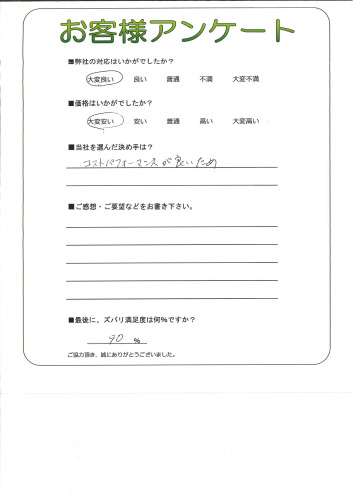 お客様アンケート
■弊社の対応はいかがでしたか？
大変良い 良い 普通 不満 大変不満
■価格はいかがでしたか？
大変安い 安い 普通 高い 大変高い
■当社を選んだ決め手は？
コストパフォーマンスが良いため
■ご感想・ご要望などをお書き下さい。
■最後に、ズバリ満足度は何%ですか？
90 %
ご協力頂き、誠にありがとうございました。